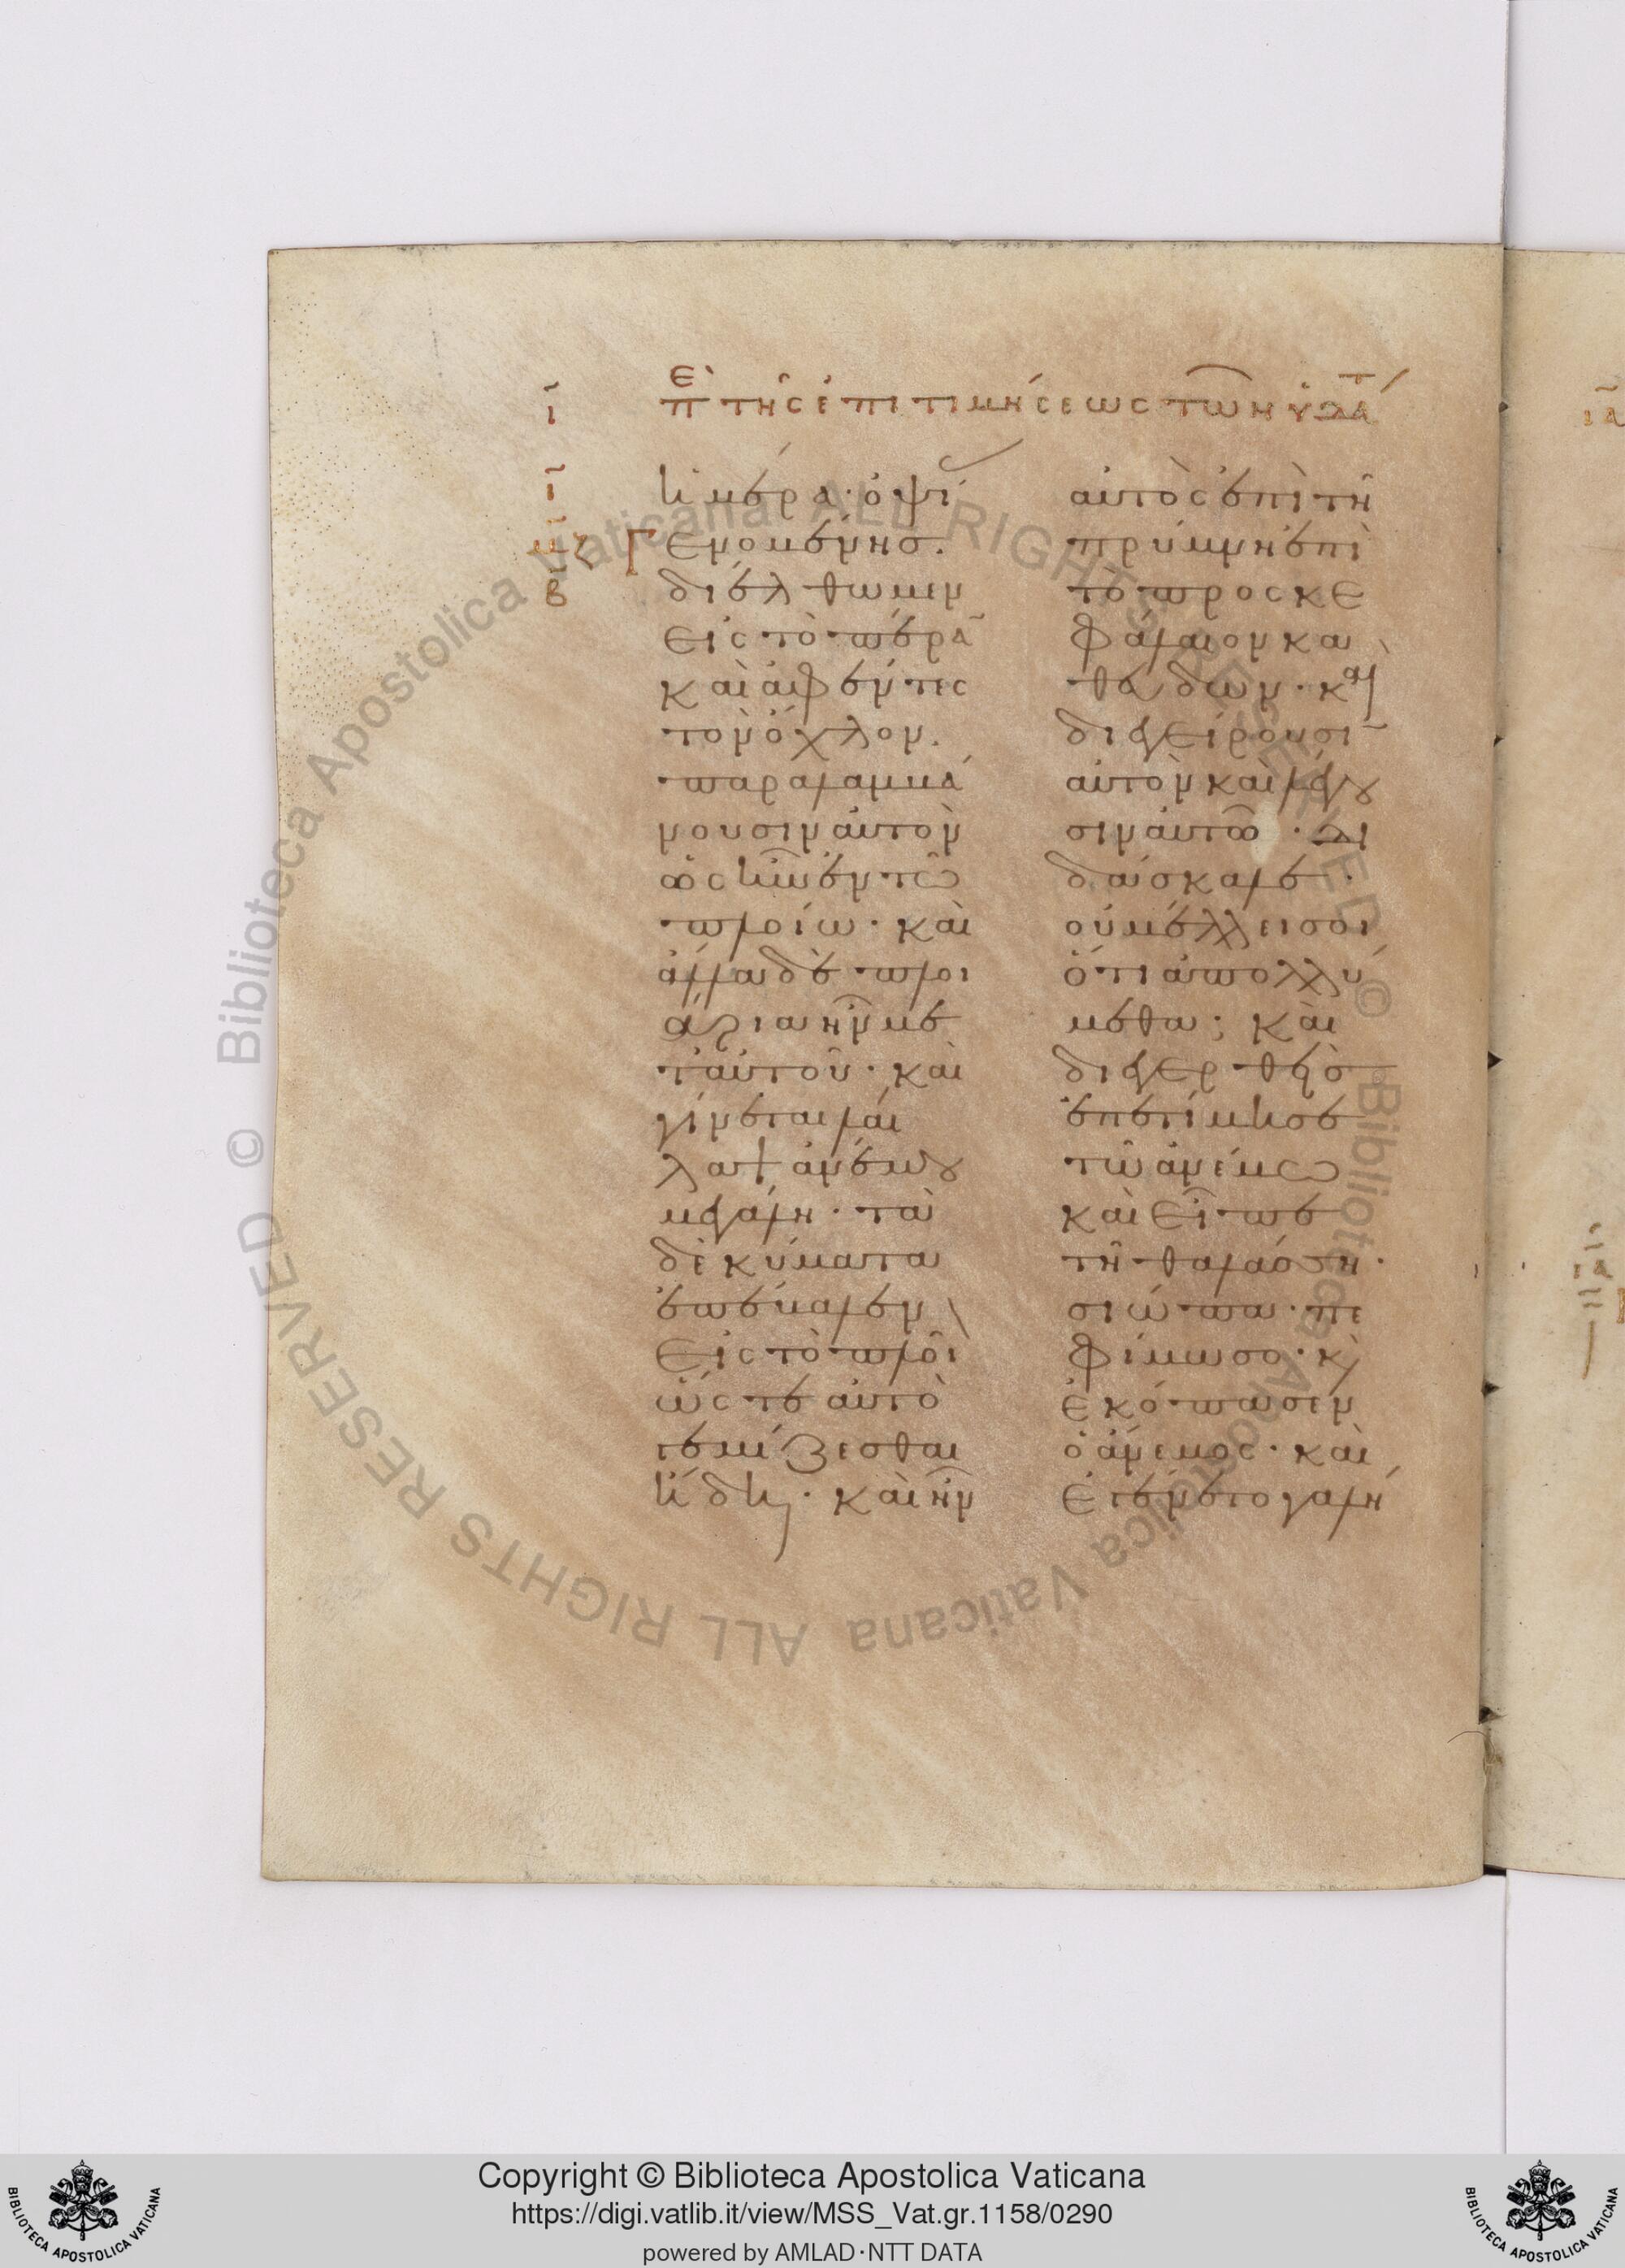 ῑ
ε
π τῆς ἐπιτιμήσεως τῶν ὑδά
ῑ
μζ
β
ἡμέρα· ὀψί
Γενομένησ.
διέλθωμεν
εἰς τὸ πέρα
καὶ ἀφέντες
τὸν ὄχλον.
παραλαμβά
νουσιν αὐτὸν
ὡς ἦν ἐν τῶ
πλοίω· καὶ
ἄλλα δὲ πλοι
άρια ἦν με
τ' αὐτοῦ· καὶ
γίνεται λαί
λαψ ἀνέμου
μεγάλη· τὰ
δὲ κύματα
ἐπέβαλεν
εἰς τὸ πλοῖ
ὥστε αὐτὸ
βυθίζεσθαι
ἤδη· καὶ ἦν
αὐτὸς ἐπὶ τῆ
πρύμνη ἐπὶ
τὸ προσκε
φάλαιον κα
θεύδων· και
διεγείρουσι
αὐτὸν καὶ λέγου
σιν αὐτῶ· δι
δάσκαλε·
οὐ μέλλει σοι
ὅτι ἀπολλύ
μεθα; καὶ
διεγερθεὶσ
ἐπετίμησε
τῶ ἀνέμω
καὶ εἶπε
τῆ θαλάσση·
σιώπα· πε
φίμωσο· κ
ἐκόπασεν
ὁ ἄνεμος· καὶ
ἐγένετο γαλή
ια
© Biblioteca Apostolica Vaticana ALL RIGHTS RESERVED © Biblioteca Apostolica Vaticana ALL RIGHTS RESERVED
BIBLIOTECA APOSTOLICA VATICANA
Copyright © Biblioteca Apostolica Vaticana
https://digi.vatlib.it/view/MSS_Vat.gr.1158/0290
powered by AMLAD·NTT DATA
BIBLIOTECA APOSTOLICA VATICANA